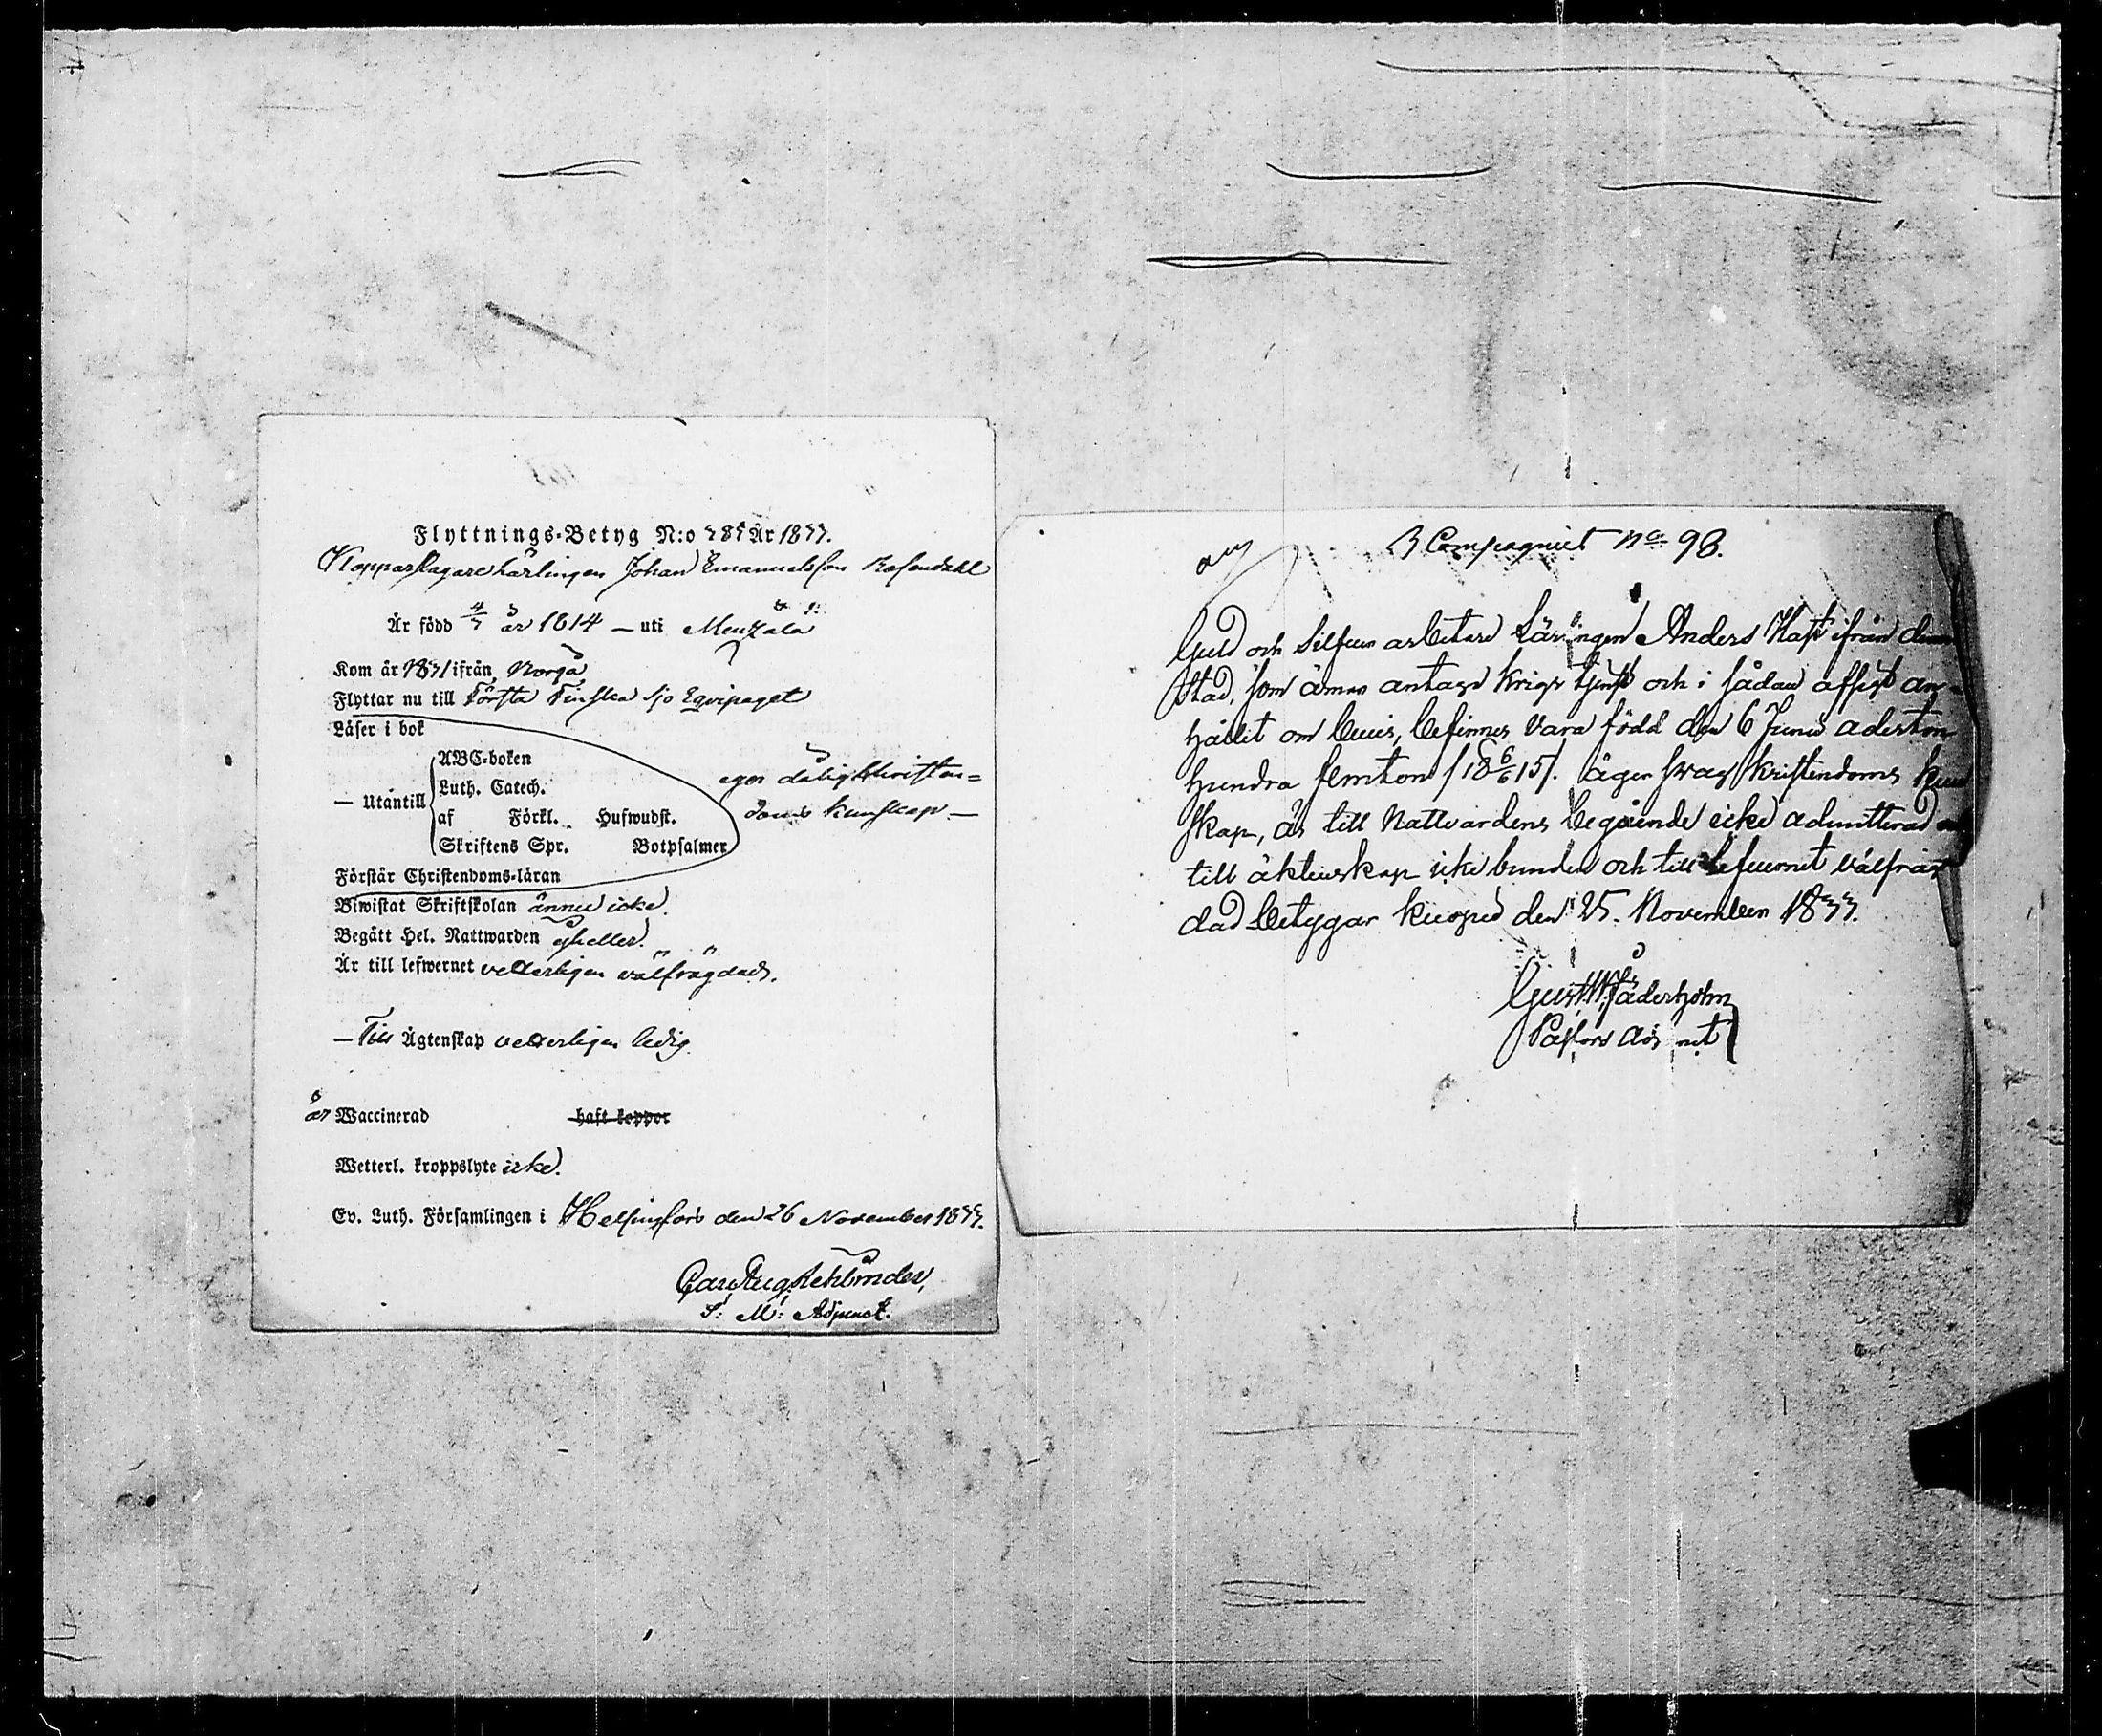 Flyttnings-Betyg N:o 285 År 1833.
Kopparslagare Lärlingen Johan Emanuelsson Rosendahl
Är född 4/7 år 1814 — uti Mentzälä
Kom år 1831 ifrån Borgå
Flyttar nu till Första Finska Sjö Eqvipaget
Läser i bok
— Utantill
ABC-boken
Luth. Catech.
af Förkl. Hufwudst.
Skriftens Spr. Botpsalmer
eger dålig Christen=
doms kunskap. —
Förstår Christendoms-läran
Biwistat Skriftskolan ännu icke.
Begått Hel. Nattwarden ej heller.
Är till lefwernet vetterligen välfrägdad.
— Till Ägtenskap vetterligen ledig.
är Waccinerad haft koppor
Wetterl. kroppslyte icke.
Ev. Luth. Församlingen i Helsingfors den 26 November 1833.
Carl Aug.
S: M: Adjunct.
3 Compagniet No 98.
Guld och Silfver arbetare Lärlingen Anders Hast ifrån denna
Stad, som ämnar antaga Krigs tjenst och i sådan afsigt an-
hållit om bevis, befinnes vara född den 6 Junii aderton
hundra femton /18 6/6 15/. äger svag Kristendoms kun
skap, är till Nattvardens begående icke admitterad
till äktenskap icke bunden och till lefvernet välfräg
dad betygar Kuopio den 25. November 1833.
Gust. W. Jäderholm
Pastors Adjunct